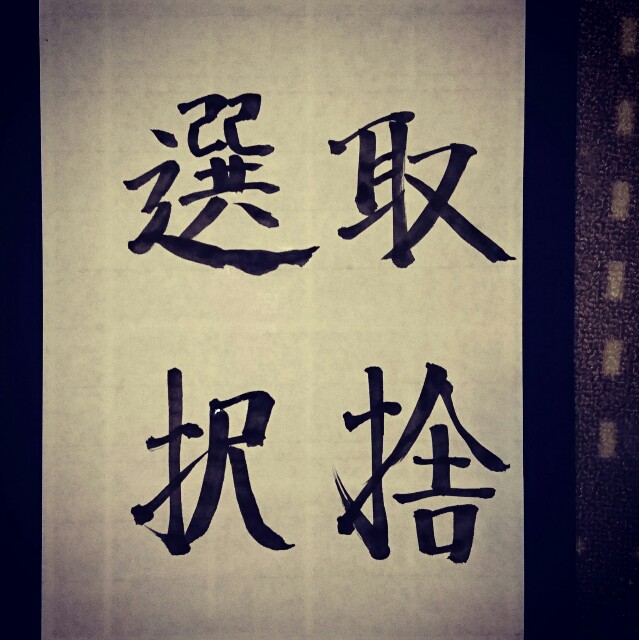 取捨
選択